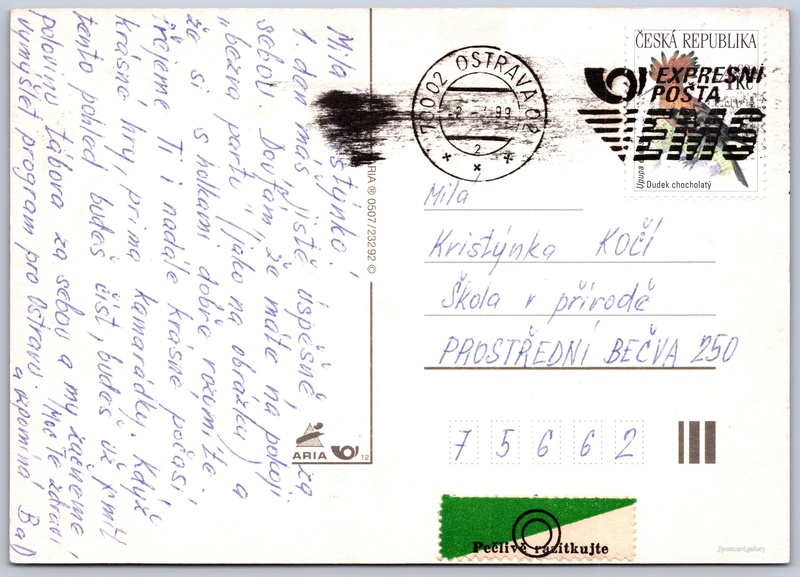 Milá Kristýnko!
1. den máš jistě úspěšně za
sebou. Doufám, že máte na pokoji
"bezva partu" (jako na obrázku) a
že si s holkami dobře rozumíte.
Přejeme Ti i nadále krásné počasí,
krásné hry, prima kamarádky. Když
tento pohled budeš číst, budeš už mít
polovinu tábora za sebou a my začneme
vymýšlet program pro Ostravu. Moc Tě zdraví
a vzpomíná
ARIA ® 0507/23292 ©
ARIA
12
700 02 OSTRAVA 02
99
2
ČESKÁ REPUBLIKA
Kč
Upupa
Dudek chocholatý
EXPRESNÍ
POŠTA
EMS
Milá
Kristýnka KOČÍ
Škola v přírodě
PROSTŘEDNÍ BEČVA 250
7 5 6 6 2
Pečlivě razítkujte